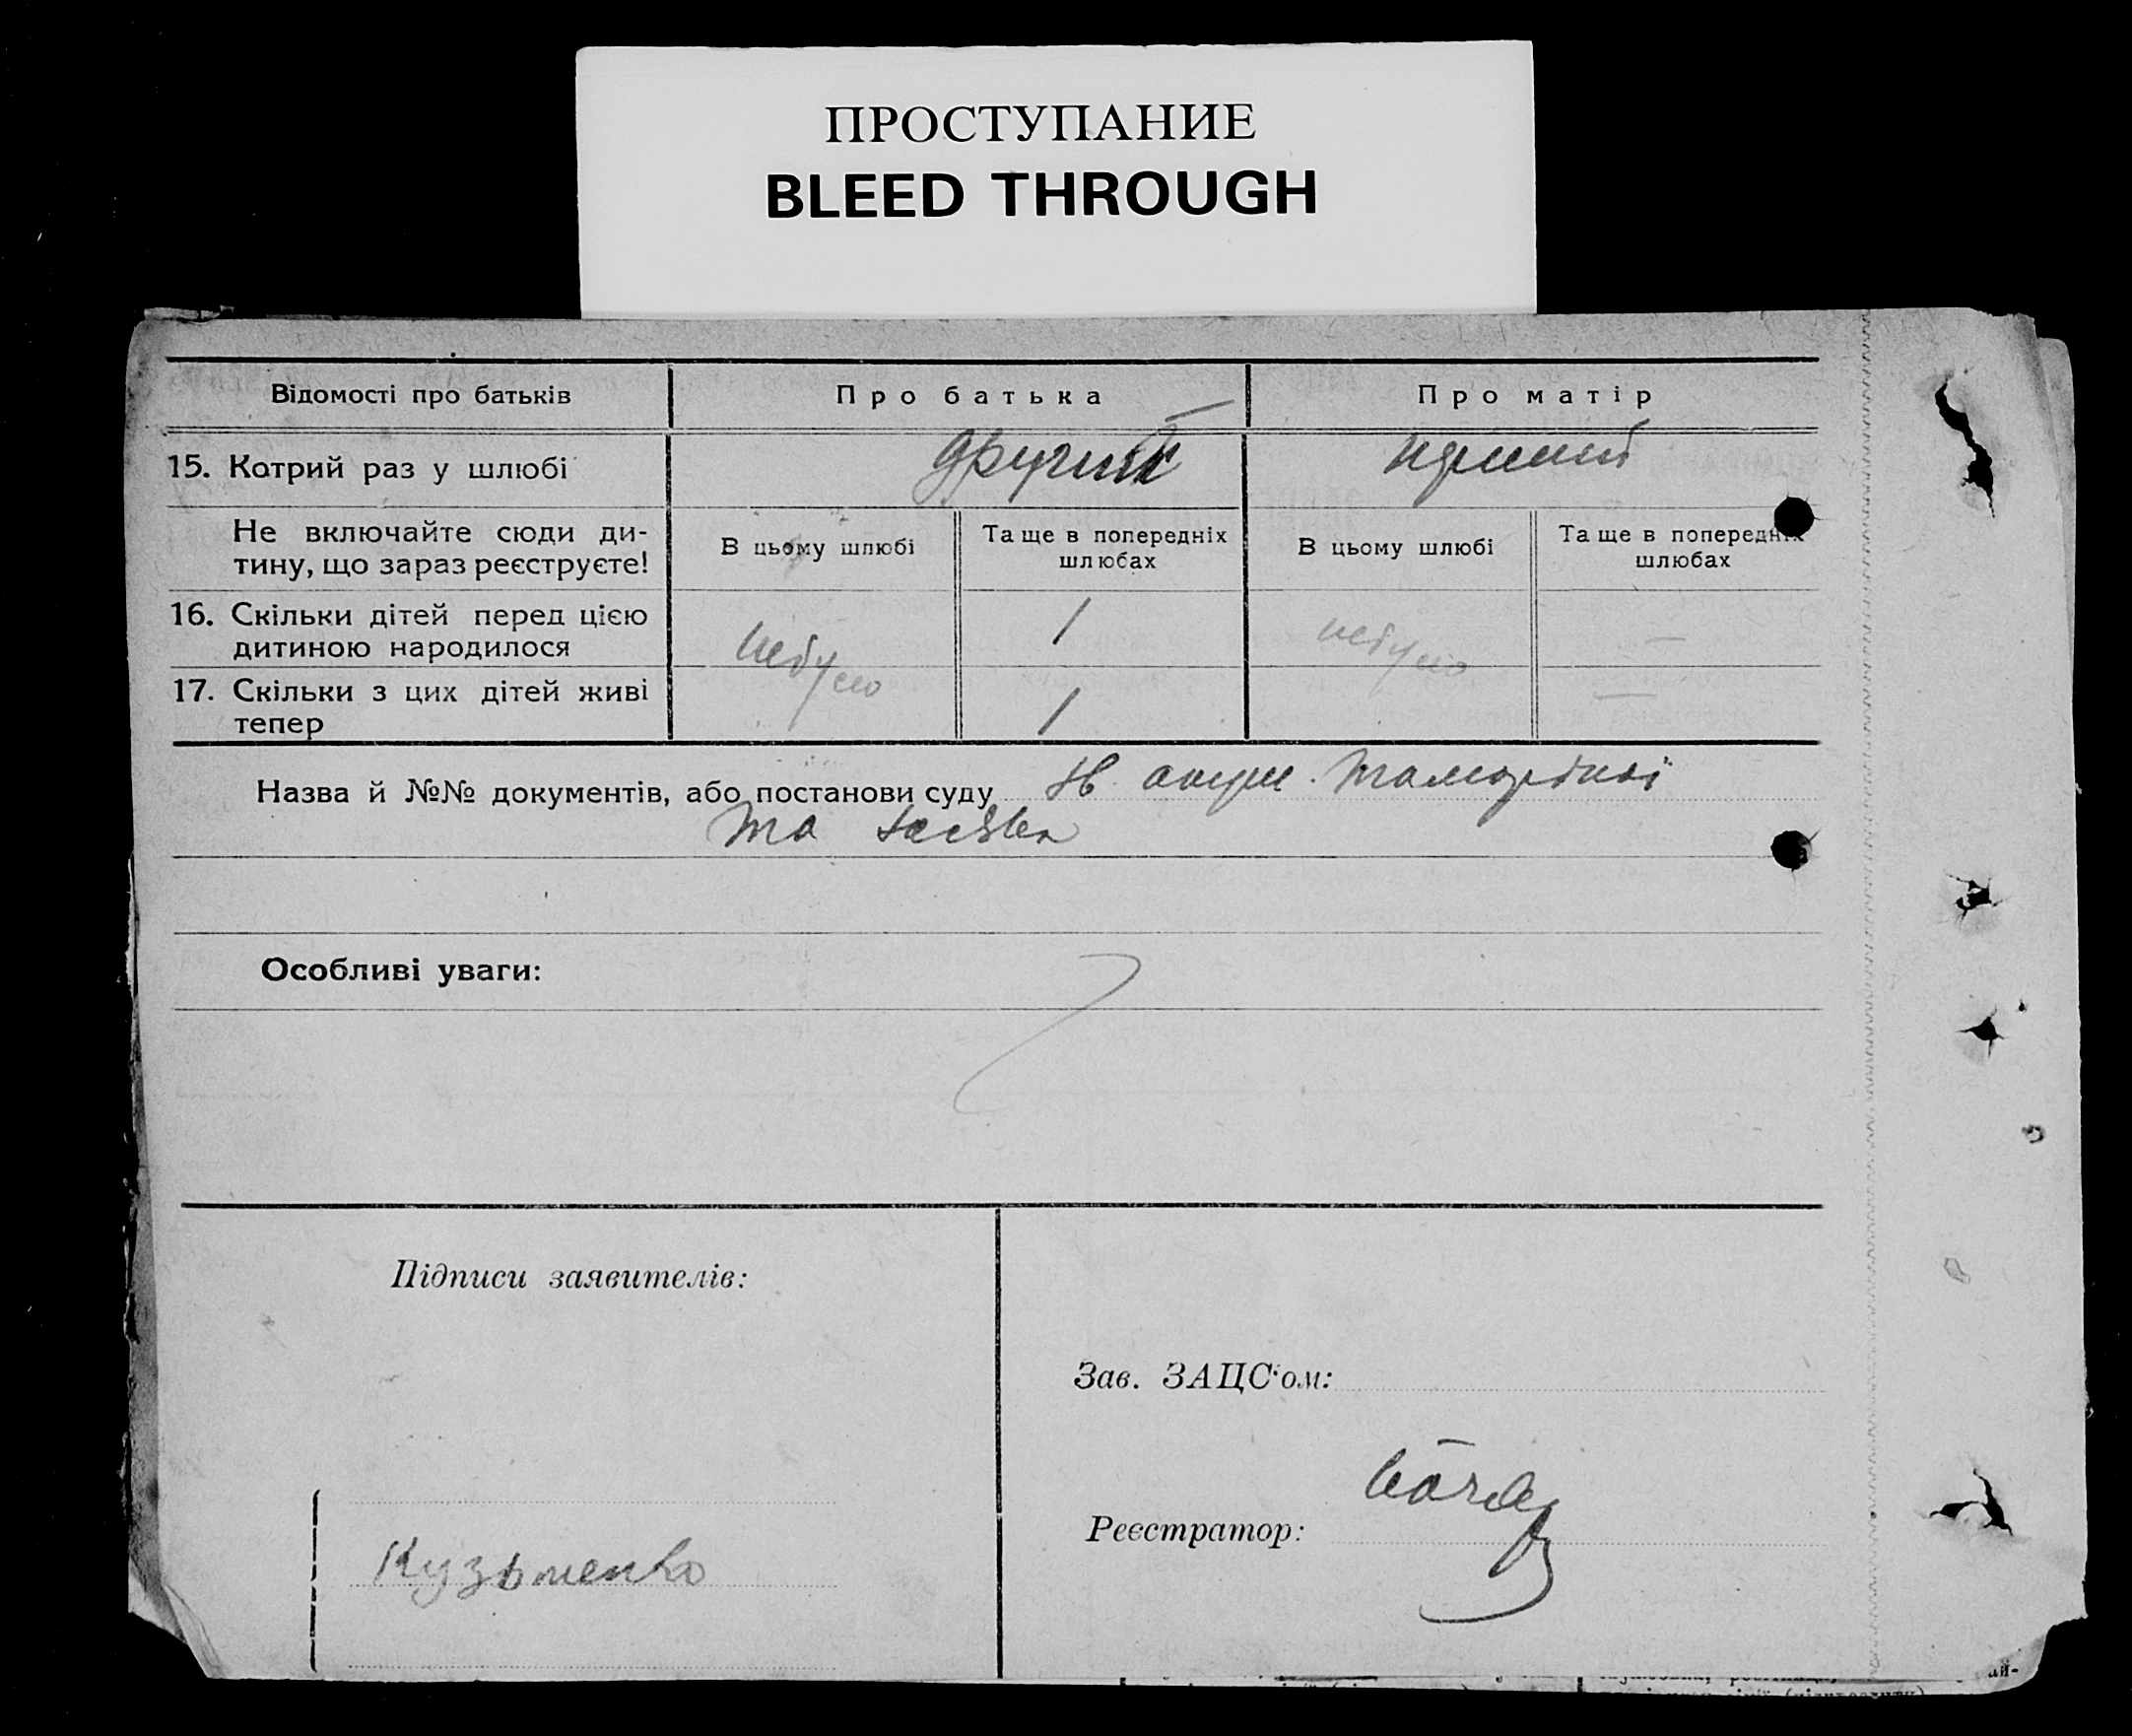 ПРОСТУПАНИЕ
BLEED THROUGH
Відомості про батьків
Про батька
Про матір
15. Котрий раз у шлюбі
другий
перший
Не включайте сюди ди-
тину, що зараз реєструєте!
В цьому шлюбі
Та ще в попередніх
шлюбах
В цьому шлюбі
Та ще в попередніх
шлюбах
16. Скільки дітей перед цією
дитиною народилося
небуло
1
небуло
—
17. Скільки з цих дітей живі
тепер
1
—
Назва й №№ документів, або постанови суду
та
Особливі уваги:
Підписи заявителів:
Зав. ЗАЦС'ом:
Реєстратор:
Кузьменко